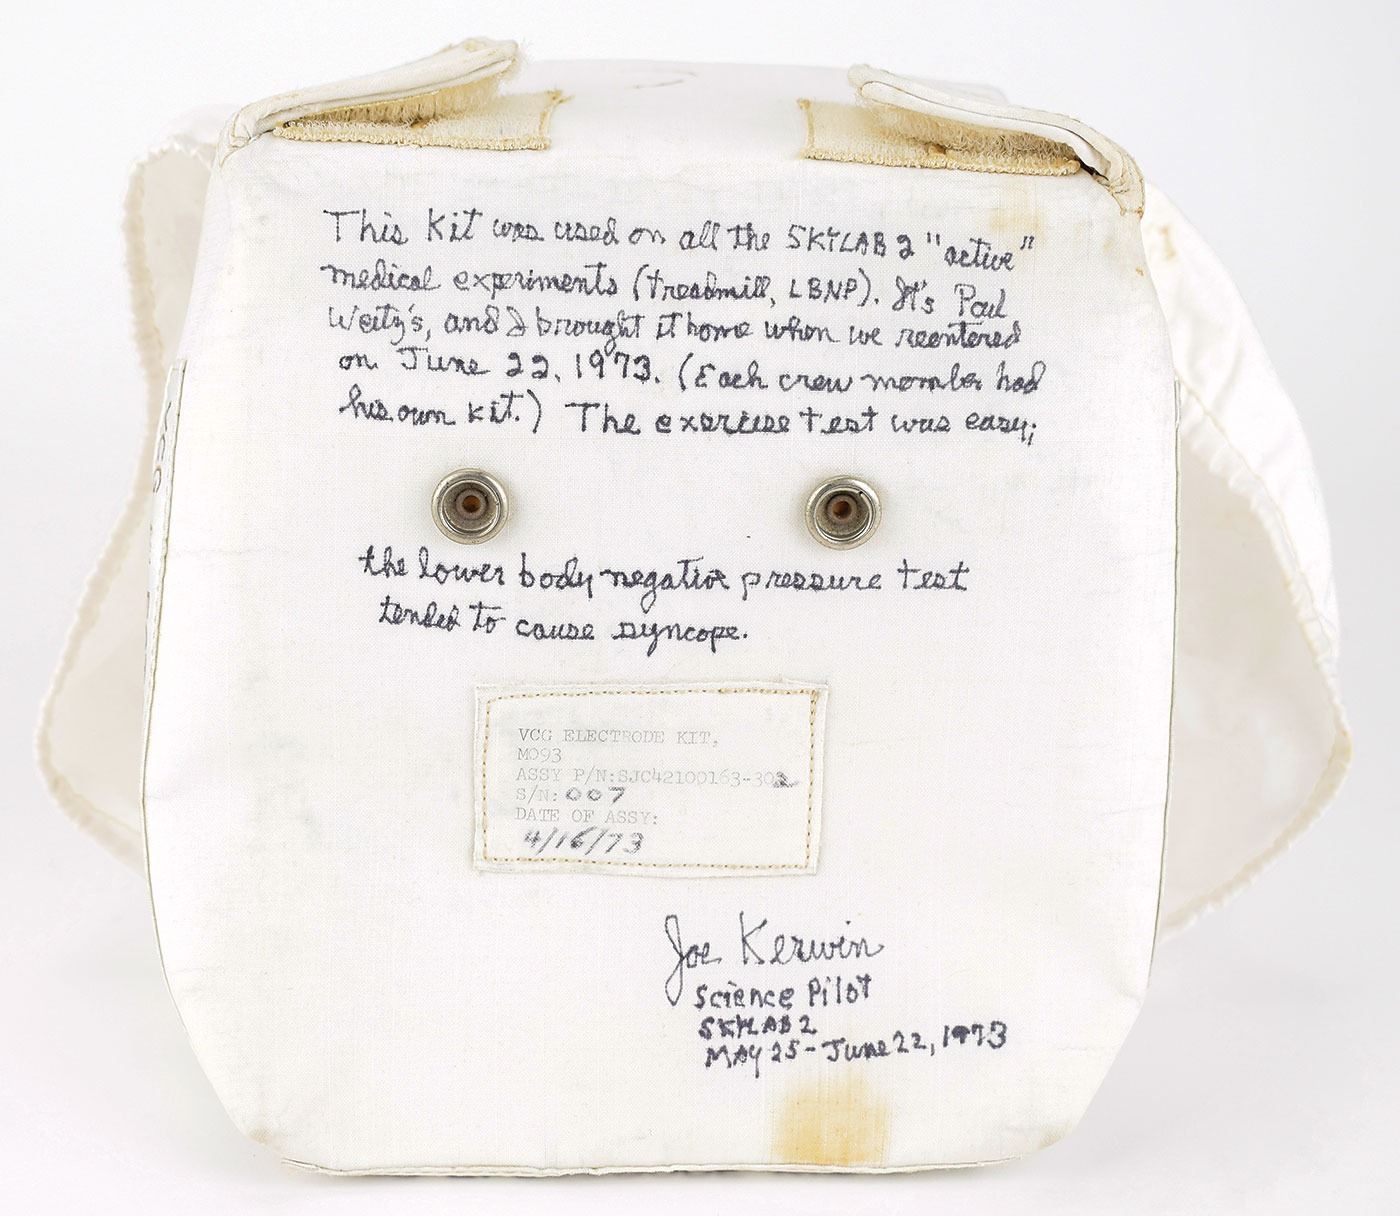 This Kit was used on all the SKYLAB 2 "active"
medical experiments (treadmill, LBNP). It's Paul
Weitz's, and I brought it home when we reentered
on June 22, 1973. (Each crew member had
his own kit.) The exercise test was easy;
the lower body negative pressure test
tended to cause syncope.
VCG ELECTRODE KIT,
M093
ASSY P/N:SJC42100163-302
S/N: 007
DATE OF ASSY:
4/16/73
Joe Kerwin
Science Pilot
SKYLAB 2
MAY 25 - June 22, 1973